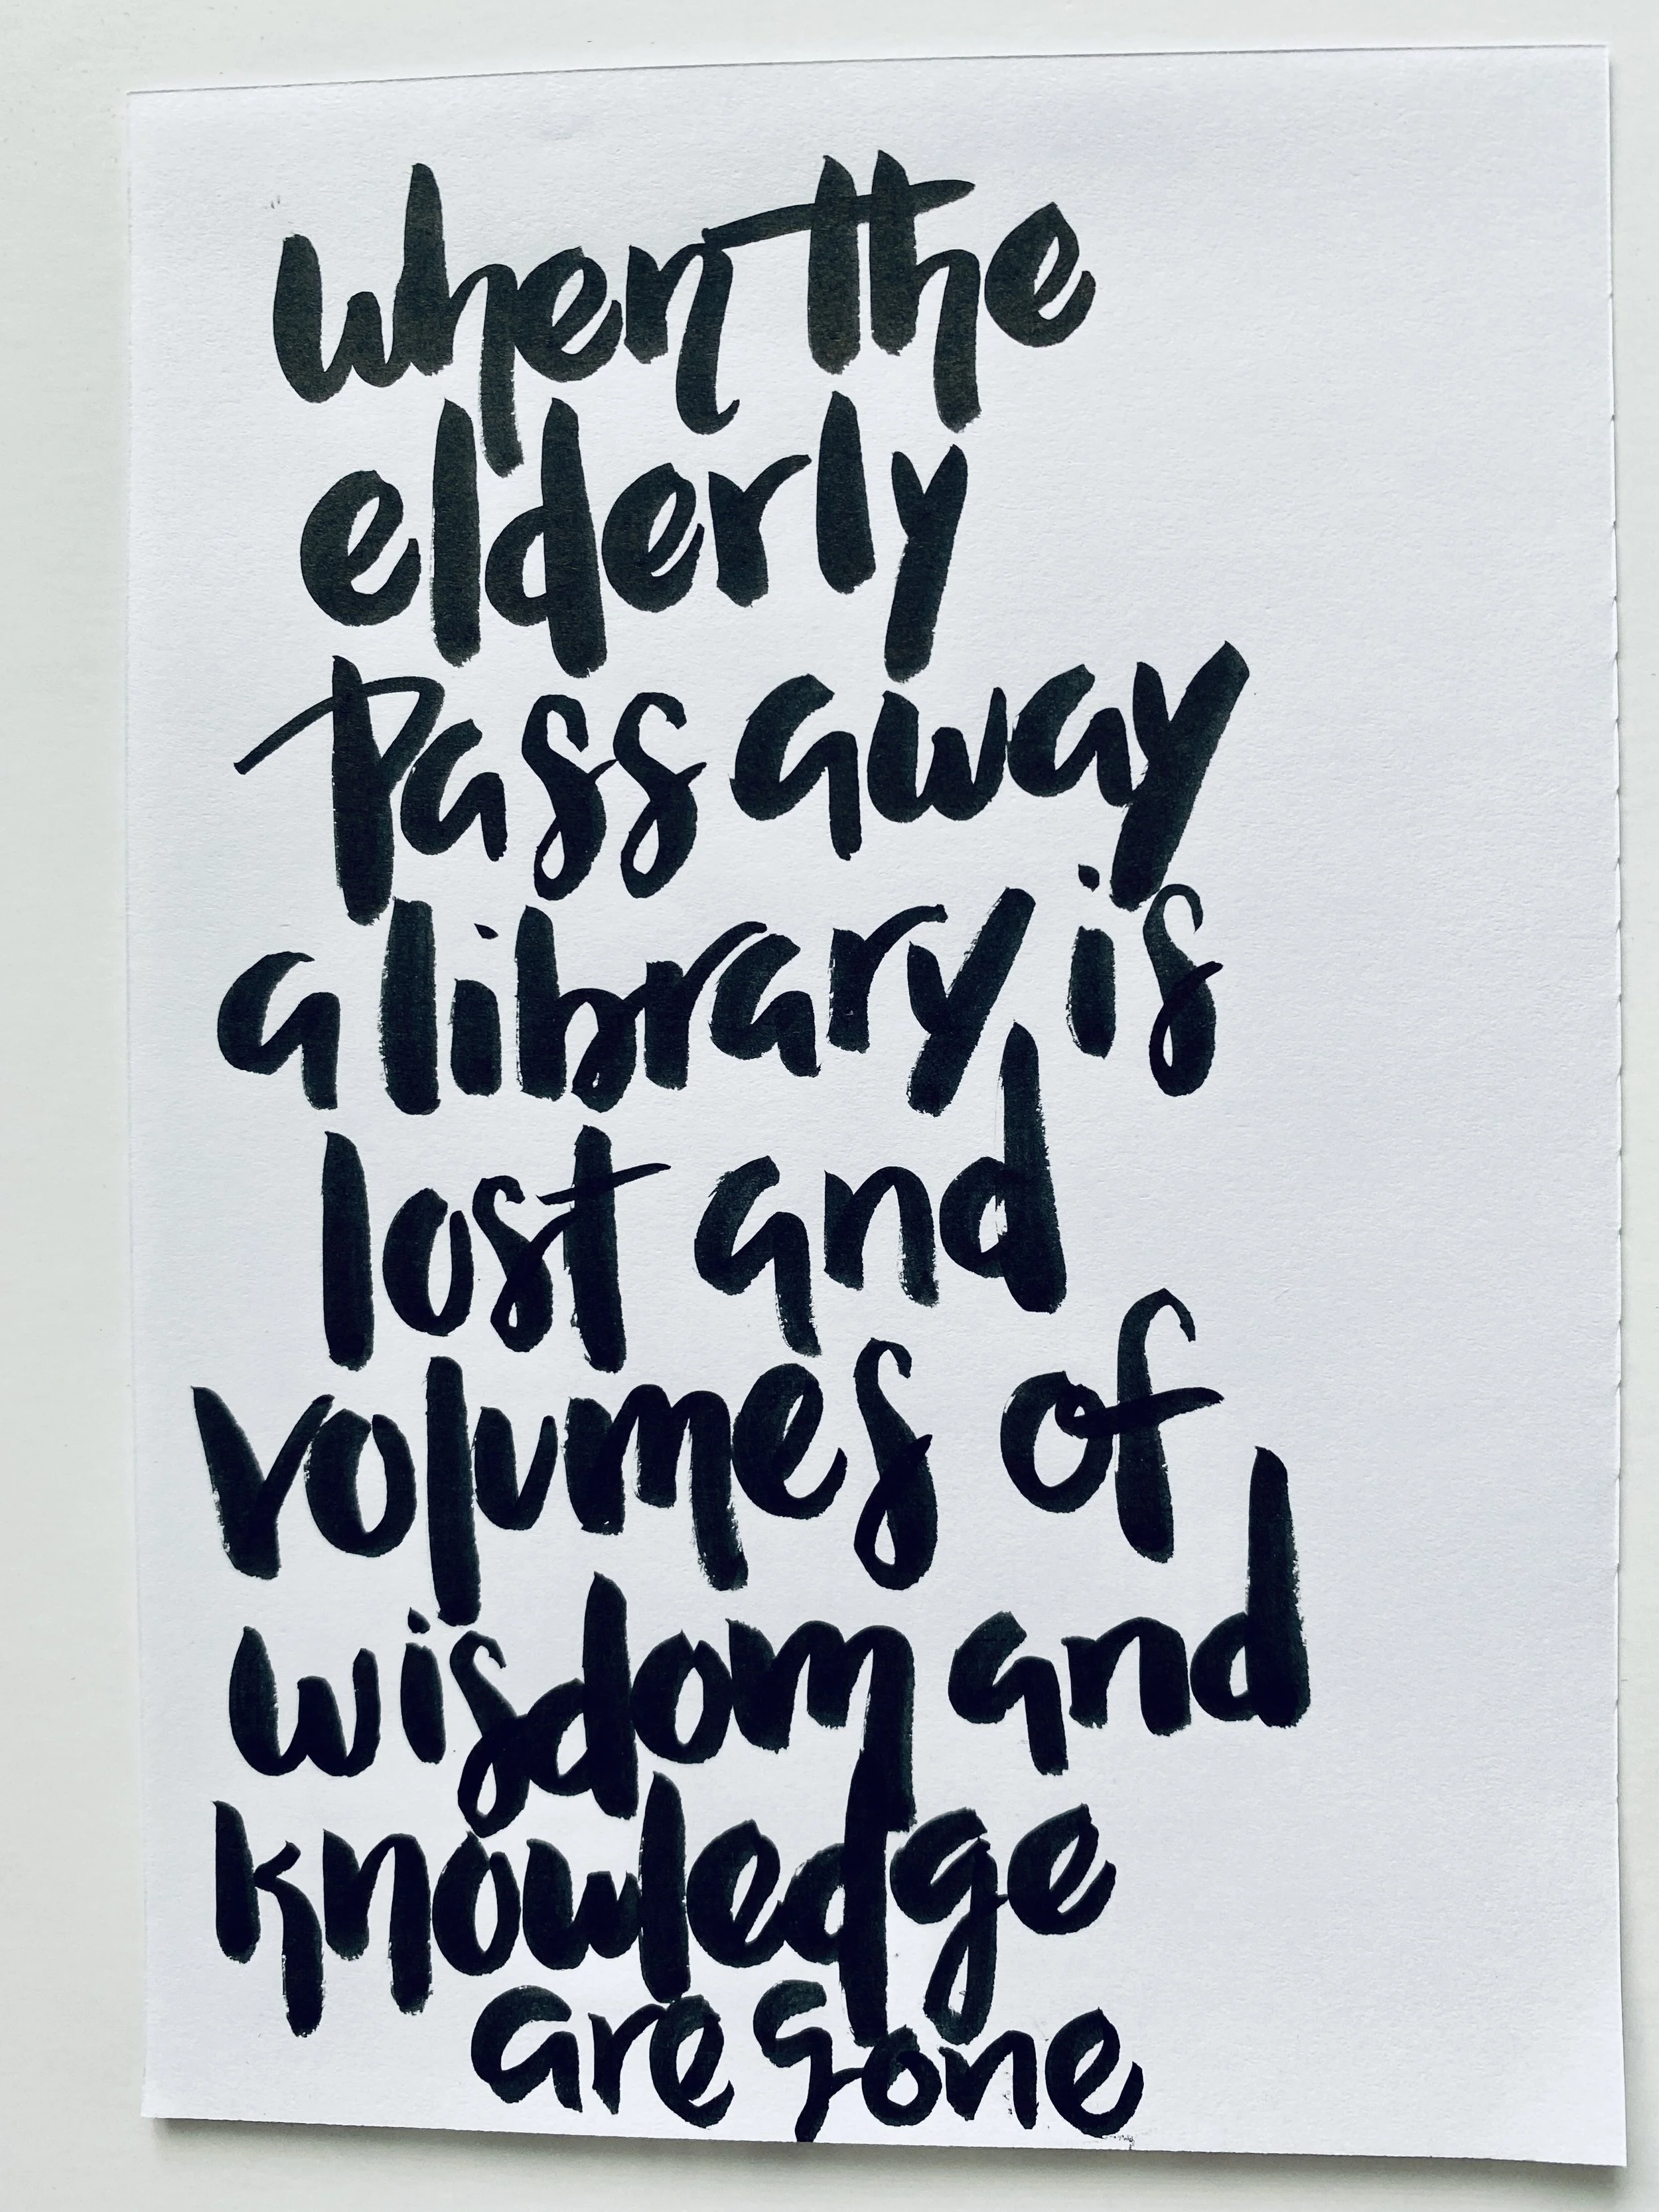 when the
elderly
Pass away
a library is
lost and
volumes of
wisdom and
knowledge
are gone